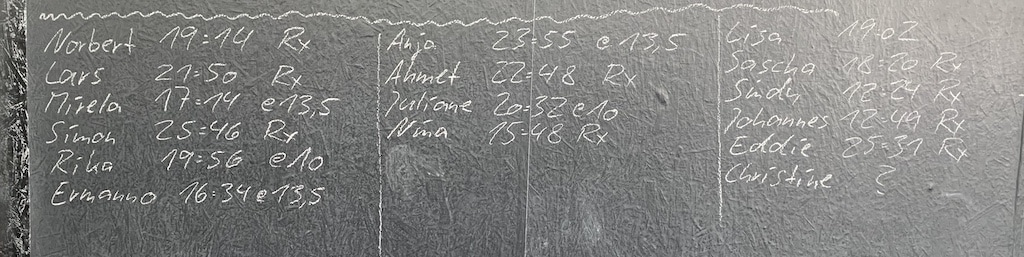 Norbert 19:14 Rx
Lars 21:50 Rx
Mirela 17:14 @13,5
Simon 25:46 Rx
Rika 19:56 @10
Ermanno 16:34 @13,5
Anja 23:55 @13,5
Ahmet 22:48 Rx
Juliane 20:32 @10
Nina 15:48 Rx
Lisa 19:02
Sascha 18:20 Rx
Sindy 12:24 Rx
Johannes 12:49 Rx
Eddie 25:31 Rx
Christine ?